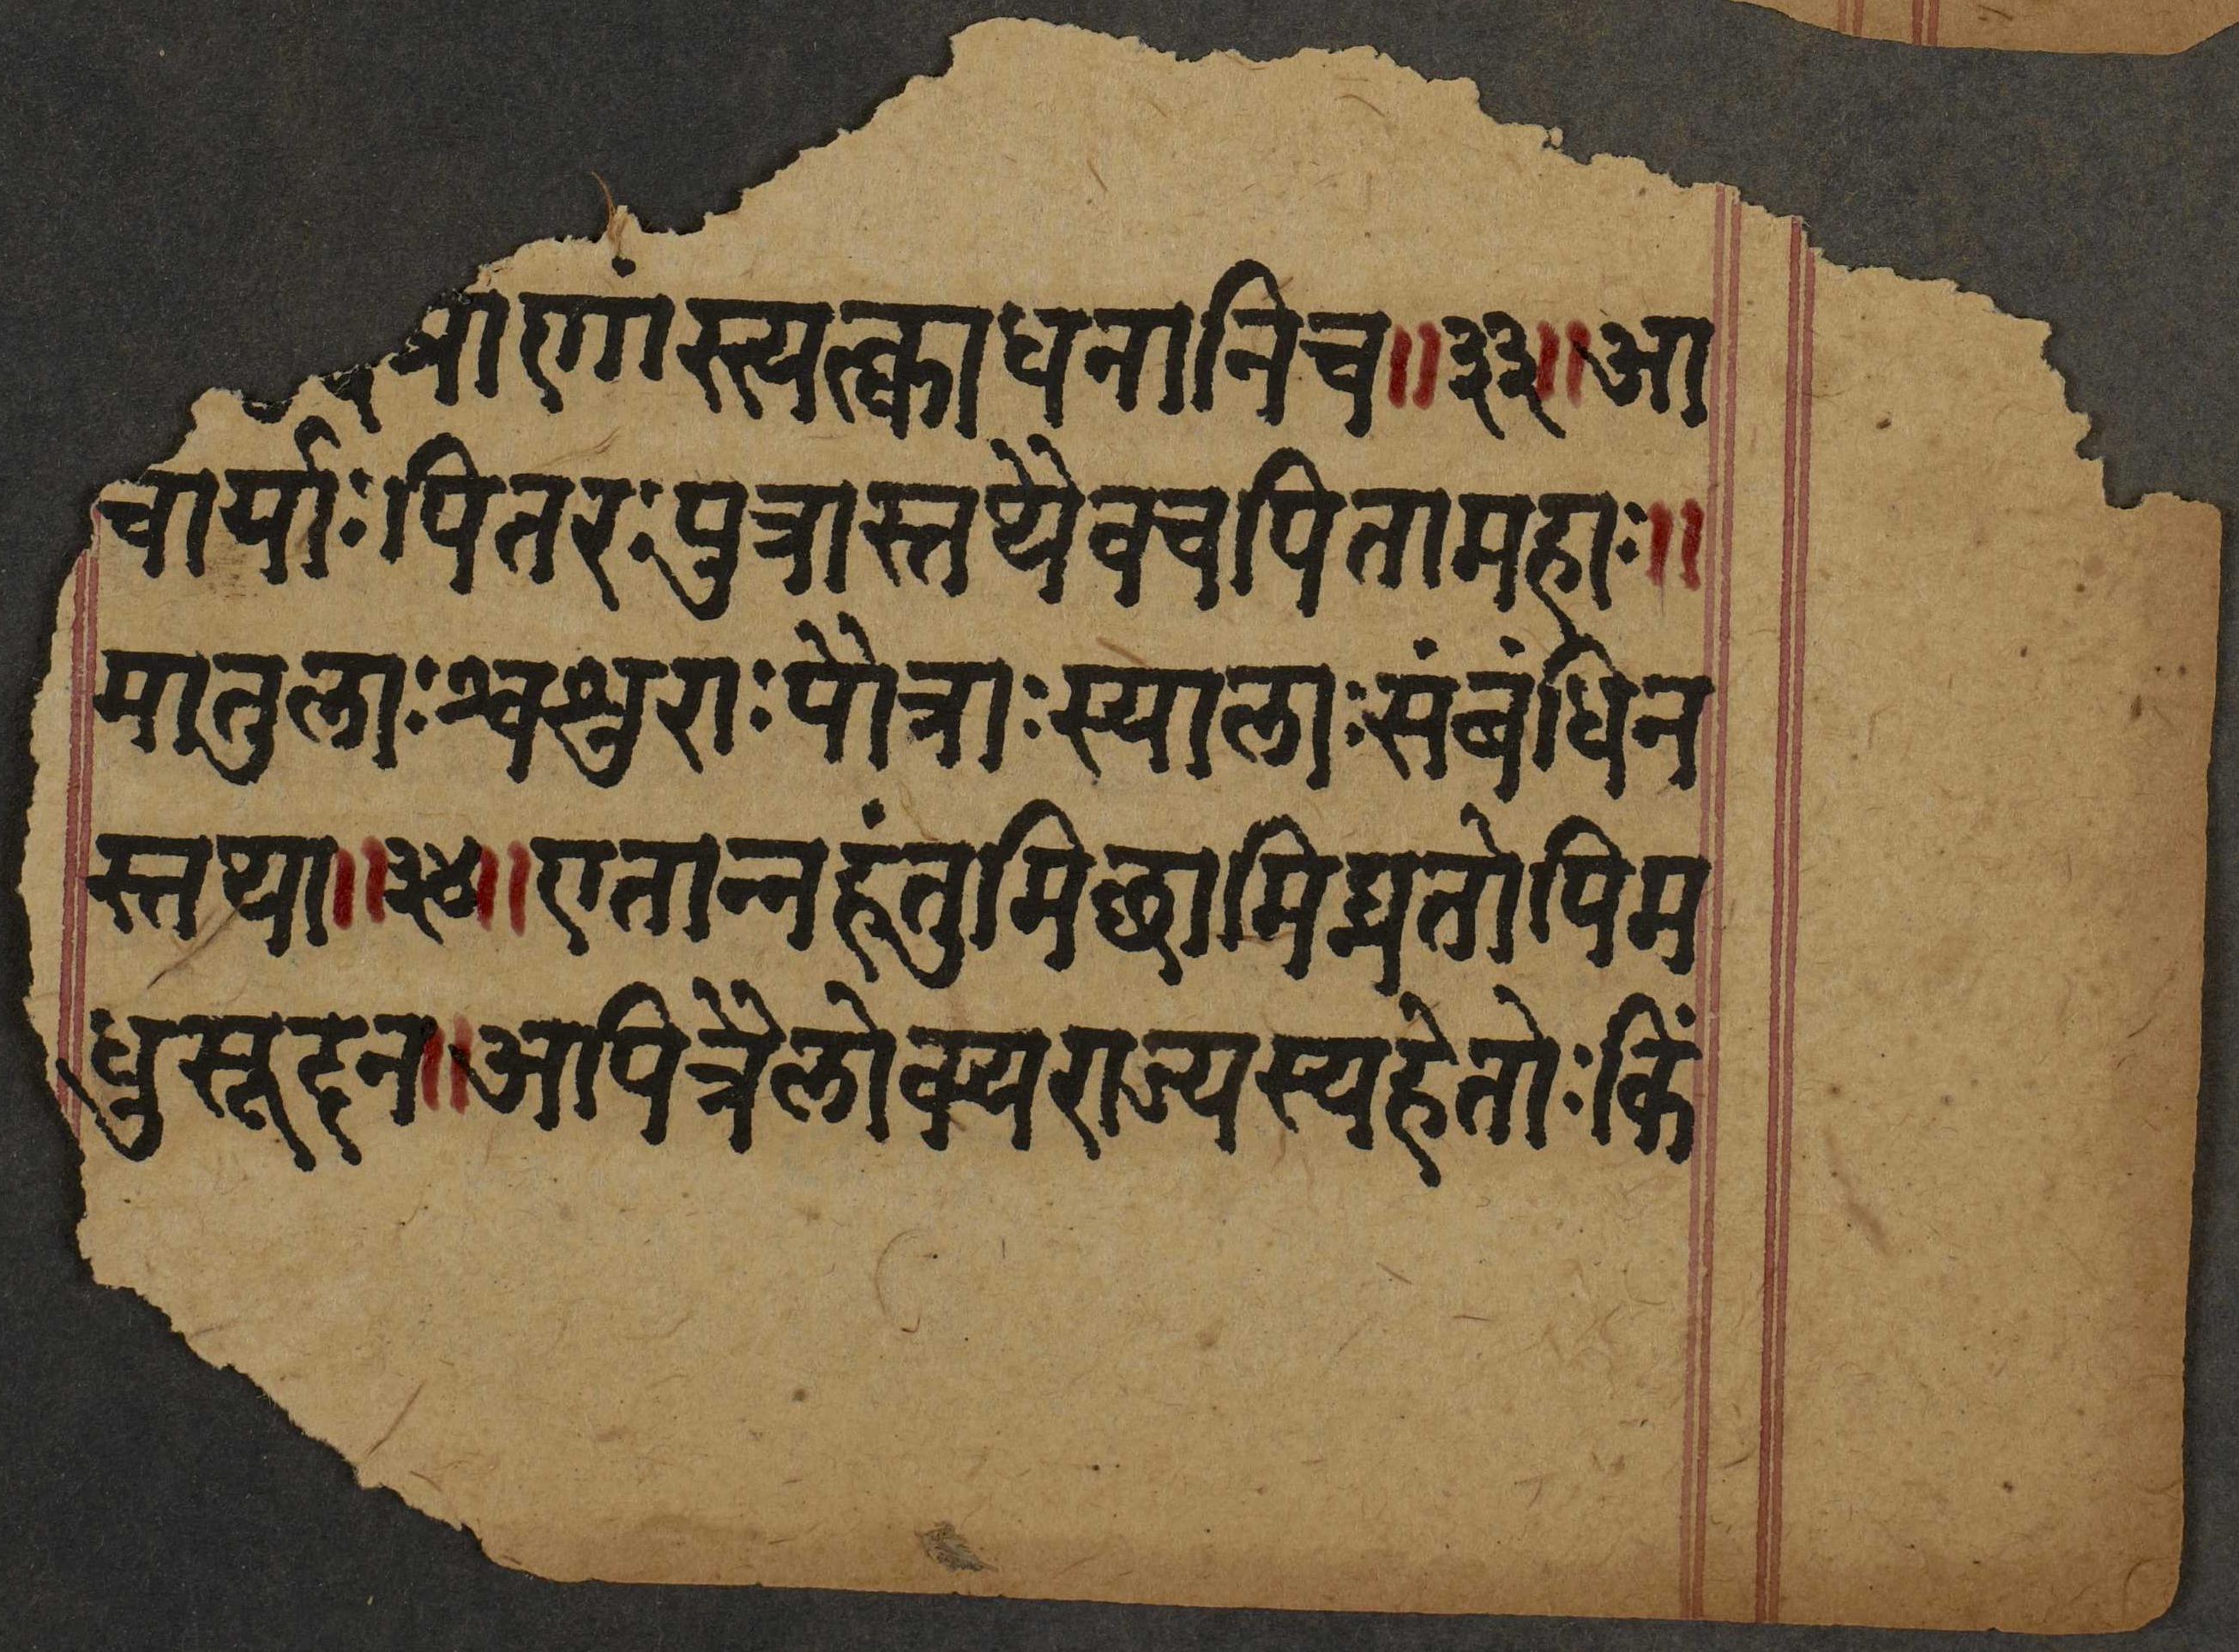 प्राणांस्त्यक्त्वाधनानिच॥३३॥आ
चार्याःपितरःपुत्रास्तथैवचपितामहाः॥
मातुलाःश्वश्रुराःपौत्राःस्यालाःसंबंधिन
स्तथा॥३४॥एतान्नहंतुमिछामिघ्नतोपिम
धुसूदन॥अपित्रैलोक्यराज्यस्यहेतोःकिं